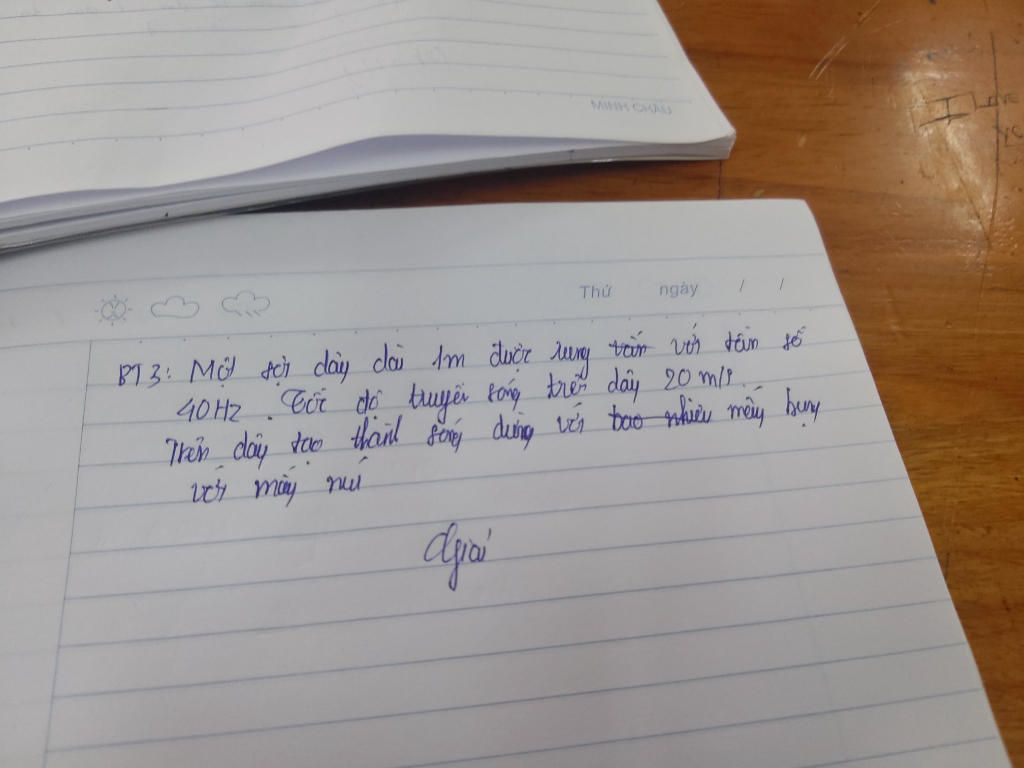 MINH CHÂU
Thứ ngày / /
BT3: Một sợi dây dài 1m được rung với tần số
40Hz. Tốc độ truyền sóng trên dây 20 m/s.
Trên dây tạo thành sóng dừng với bao nhiêu mấy bụng
với mấy nút
Giải